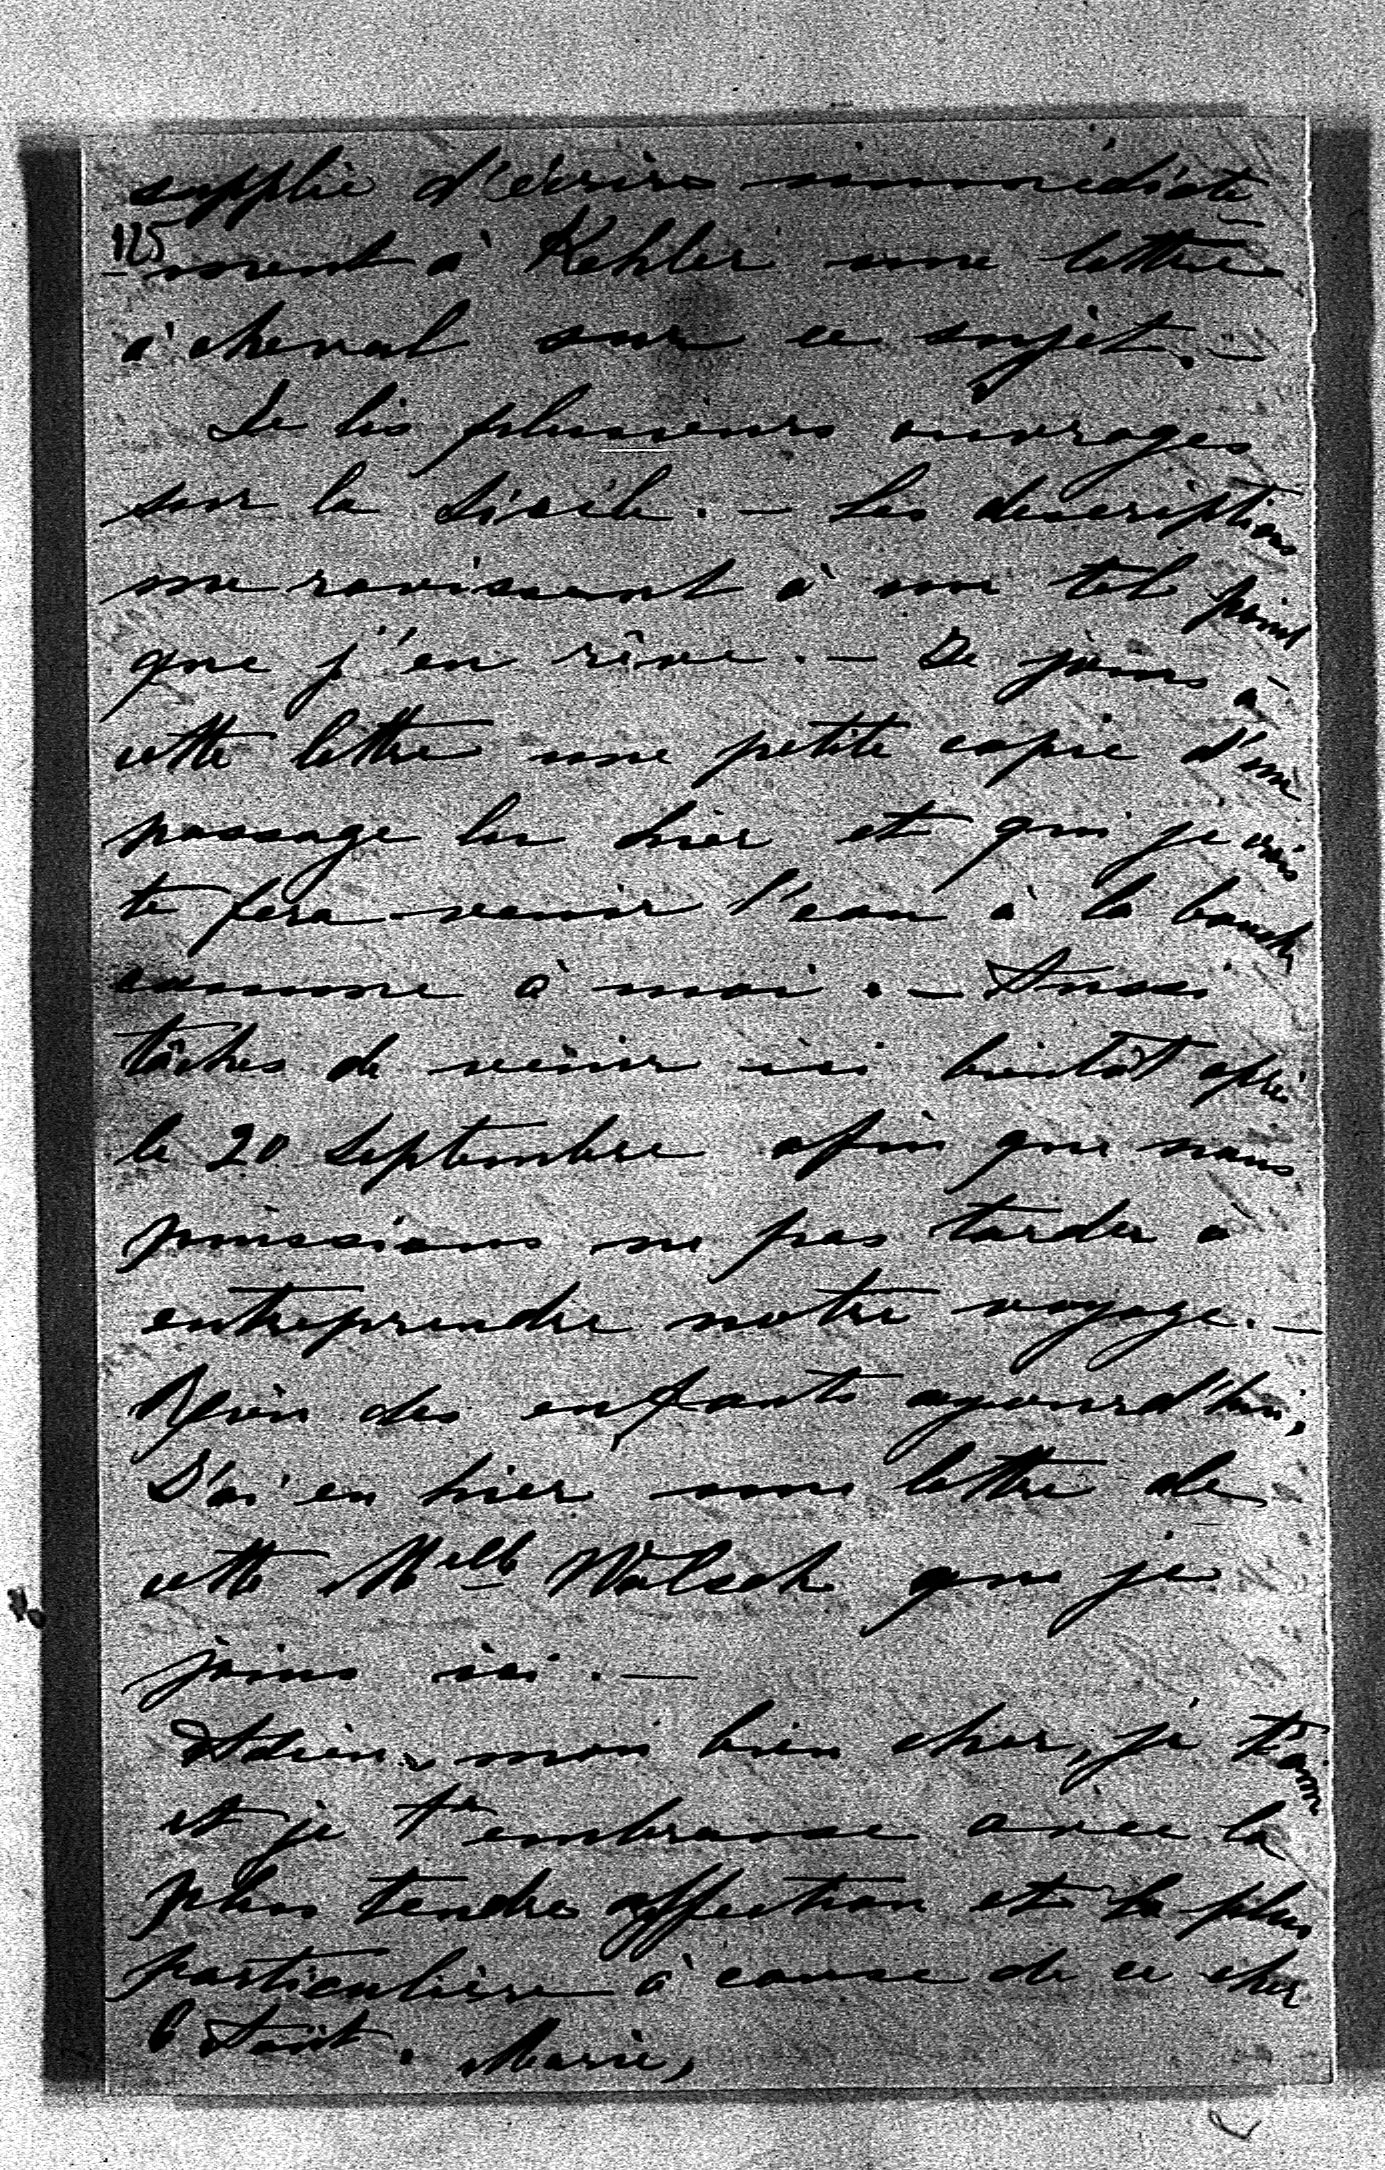 supplie d'écrire immédiate
125
-ment à Kehler une lettre
à cheval sur ce sujet. —
Je lis plusieurs ouvrages
sur la Sicile. — Les descriptions
me ravissent à un tel point
que j'en rêve. — Je joins à
cette lettre une petite copie d'un
passage lu hier et qui je crois
te fera venir l'eau à la bouche
comme à moi. — Aussi
tâches de venir ici bientôt après
le 20 Septembre afin que nous
puissions ne pas tarder à
entreprendre notre voyage. —
Rien des enfants aujourd'hui,
J'ai eu hier une lettre de
cette Melle Walsch que je
joins ici. —
Adieu, mon bien cher, je t'aime
et je t'embrasse avec la
plus tendre affection et la plus
particulière à cause de ce cher
6 Août. Marie,